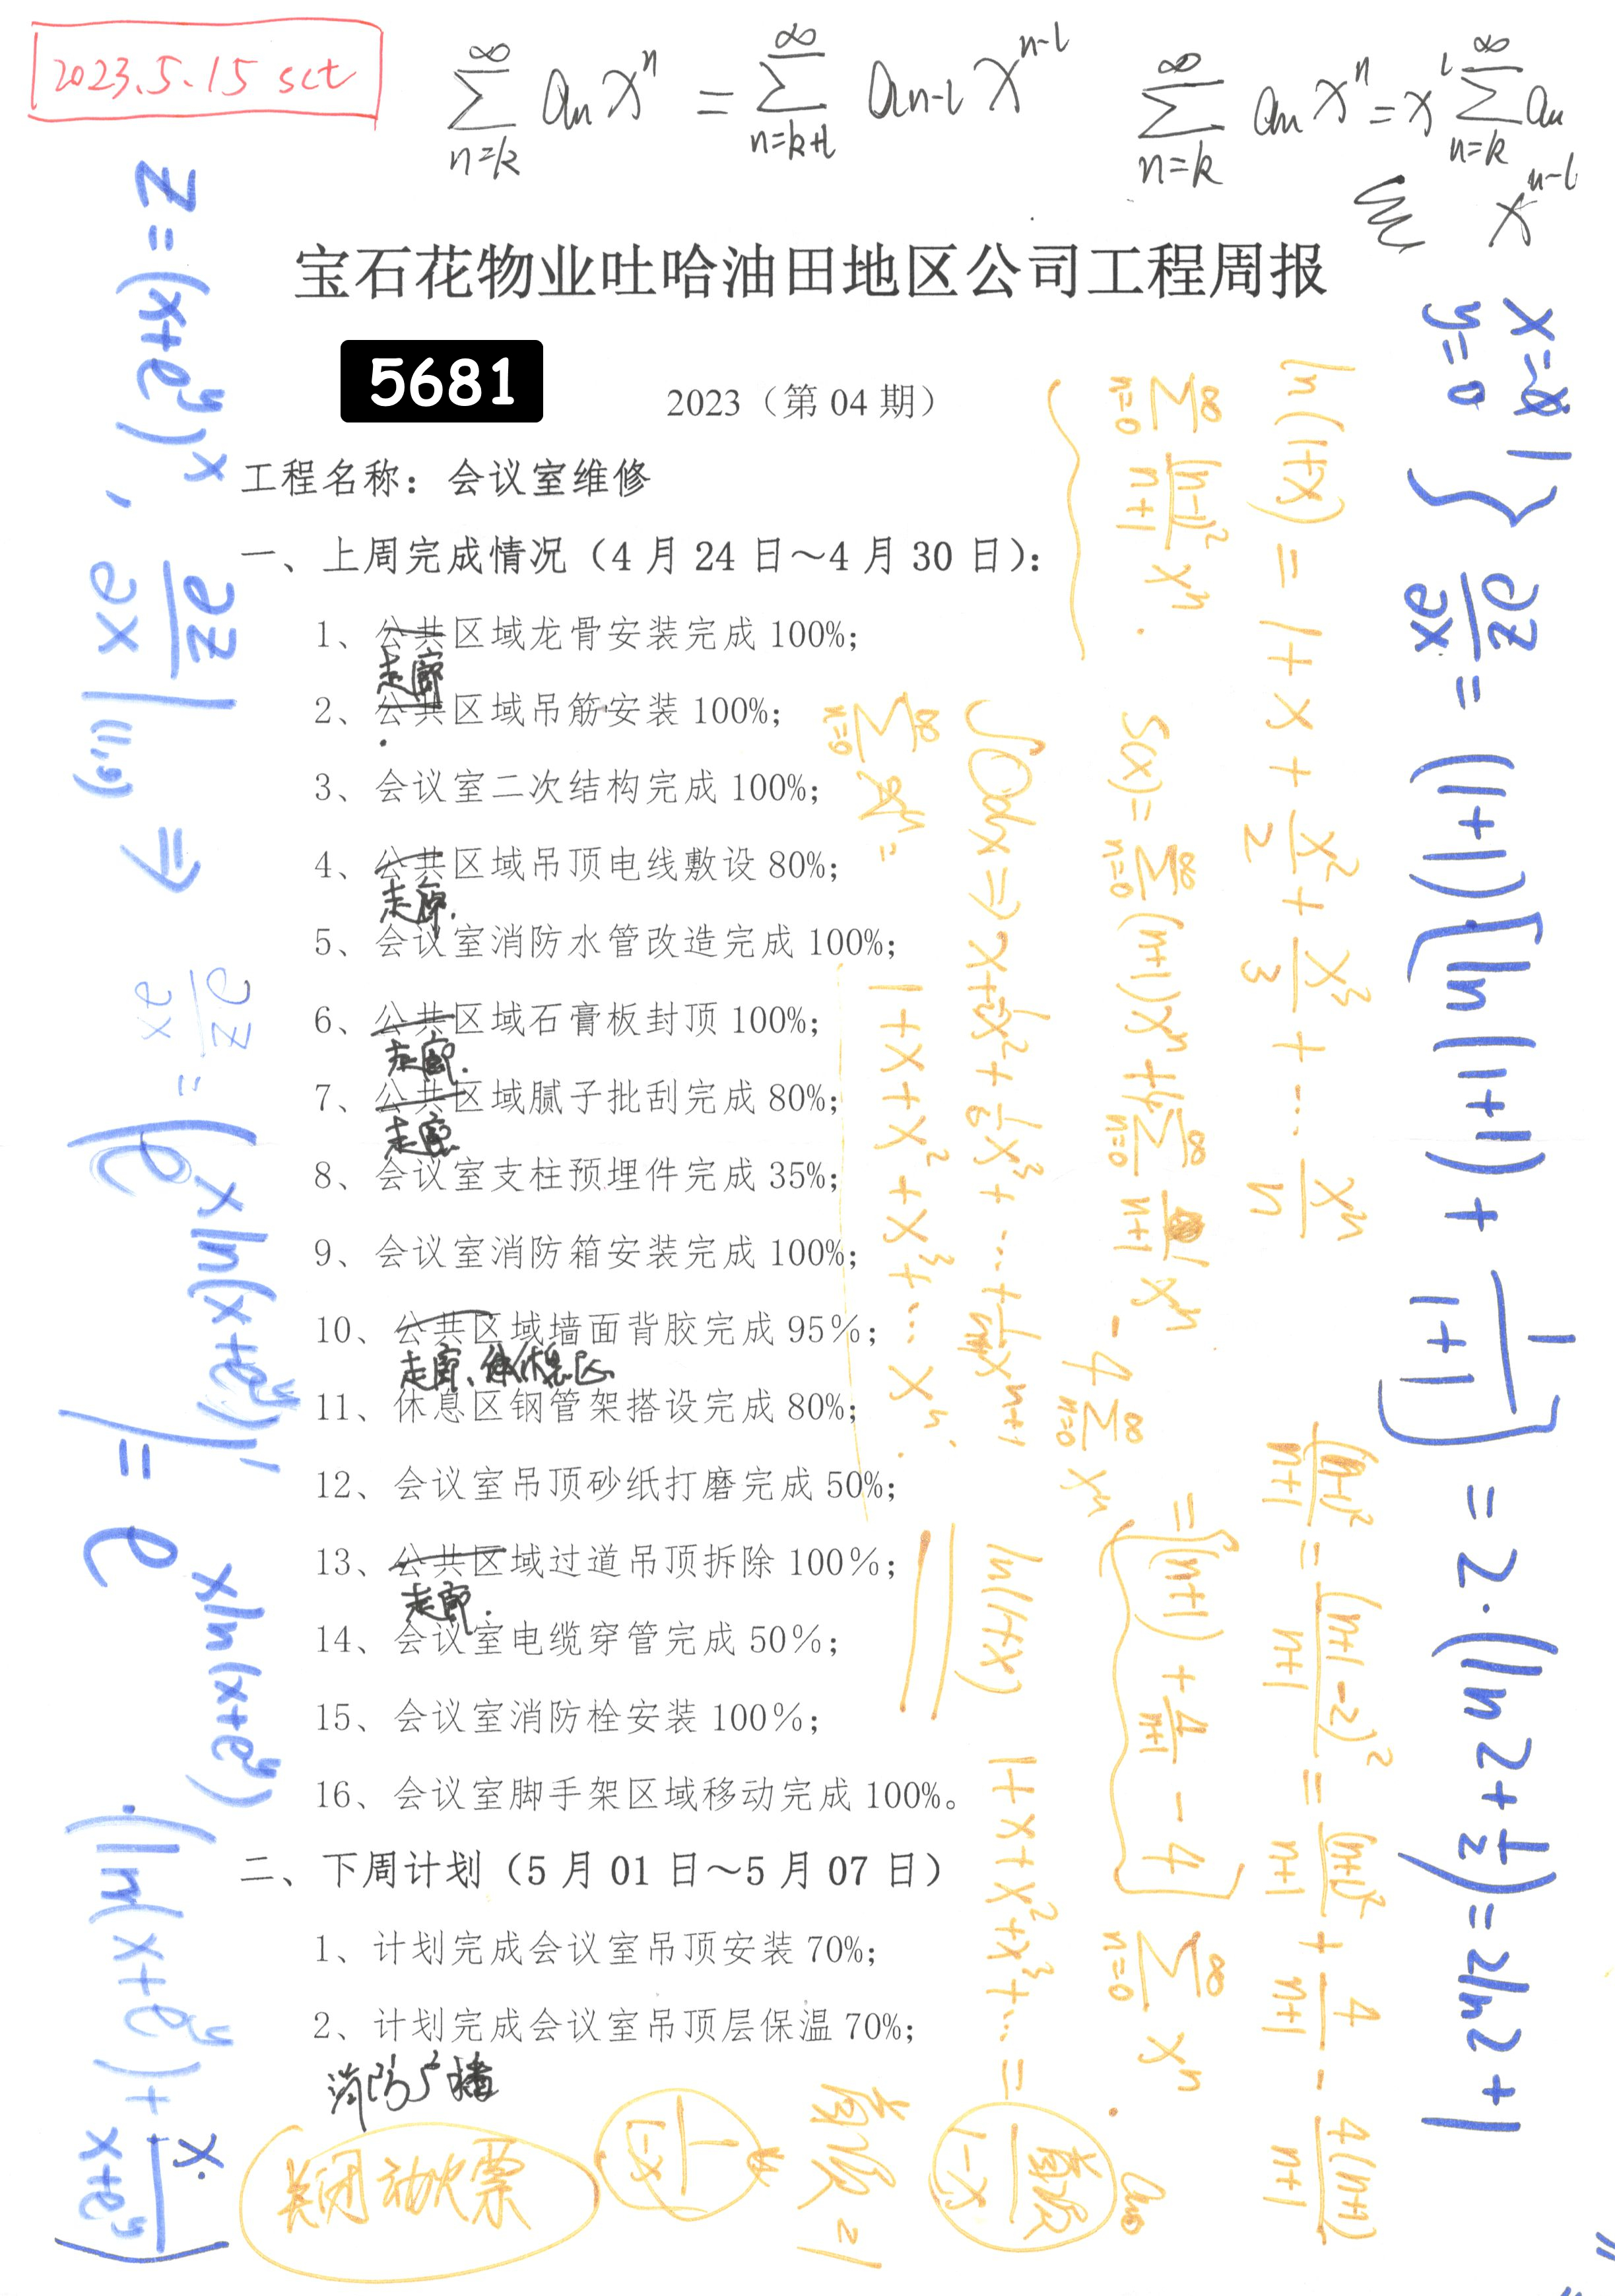 2023.5.15 sct
∑_{n=k}^{∞} a_n x^n = ∑_{n=k+l}^{∞} a_{n-l} x^{n-l}
∑_{n=k}^{∞} a_n x^n = x^l ∑_{n=k}^{∞} a_n x^{n-l}
宝石花物业吐哈油田地区公司工程周报
5681
2023（第 04 期）
工程名称：会议室维修
一、上周完成情况（4 月 24 日～4 月 30 日）：
1、公共区域龙骨安装完成 100%；
走廊
2、公共区域吊筋安装 100%；
3、会议室二次结构完成 100%；
4、公共区域吊顶电线敷设 80%；
走廊.
5、会议室消防水管改造完成 100%；
6、公共区域石膏板封顶 100%；
走廊.
7、公共区域腻子批刮完成 80%；
走廊
8、会议室支柱预埋件完成 35%；
9、会议室消防箱安装完成 100%；
10、公共区域墙面背胶完成 95%；
走廊、休息区
11、休息区钢管架搭设完成 80%；
12、会议室吊顶砂纸打磨完成 50%；
13、公共区域过道吊顶拆除 100%；
走廊.
14、会议室电缆穿管完成 50%；
15、会议室消防栓安装 100%；
16、会议室脚手架区域移动完成 100%。
二、下周计划（5 月 01 日～5 月 07 日）
1、计划完成会议室吊顶安装 70%；
2、计划完成会议室吊顶层保温 70%；
消防广播
关闭动火票
z=(x+e^y)^x , ∂z/∂x |(1,0) ⇒
∂z/∂x = (e^{x ln(x+e^y)})' = e^{x ln(x+e^y)} · (ln(x+e^y) + x · 1/(x+e^y))
x=1
y=0 } ∂z/∂x = (1+1)[ln(1+1) + 1/(1+1)] = 2·(ln2+1/2) = 2ln2+1
ln(1+x) = 1+x+x²/2+x³/3+… x^n/n
∑_{n=0}^{∞} (n-1)²/(n+1) x^n .
S(x)= ∑_{n=0}^{∞} (n+1)x^n + 4∑_{n=0}^{∞} 1/(n+1) x^n - 4∑_{n=0}^{∞} x^n
(n-1)²/(n+1) = (n+1-2)²/(n+1) = (n+1)²/(n+1) + 4/(n+1) - 4(n+1)/(n+1)
= [(n+1) + 4/(n+1) - 4] ∑_{n=0}^{∞} x^n
∑_{n=0}^{∞} x^n =
1+x+x²+x³+… x^n .
ln(1+x)
1+x+x²+x³+… = 首项/(1-x)
首项=1
1/(1-x)